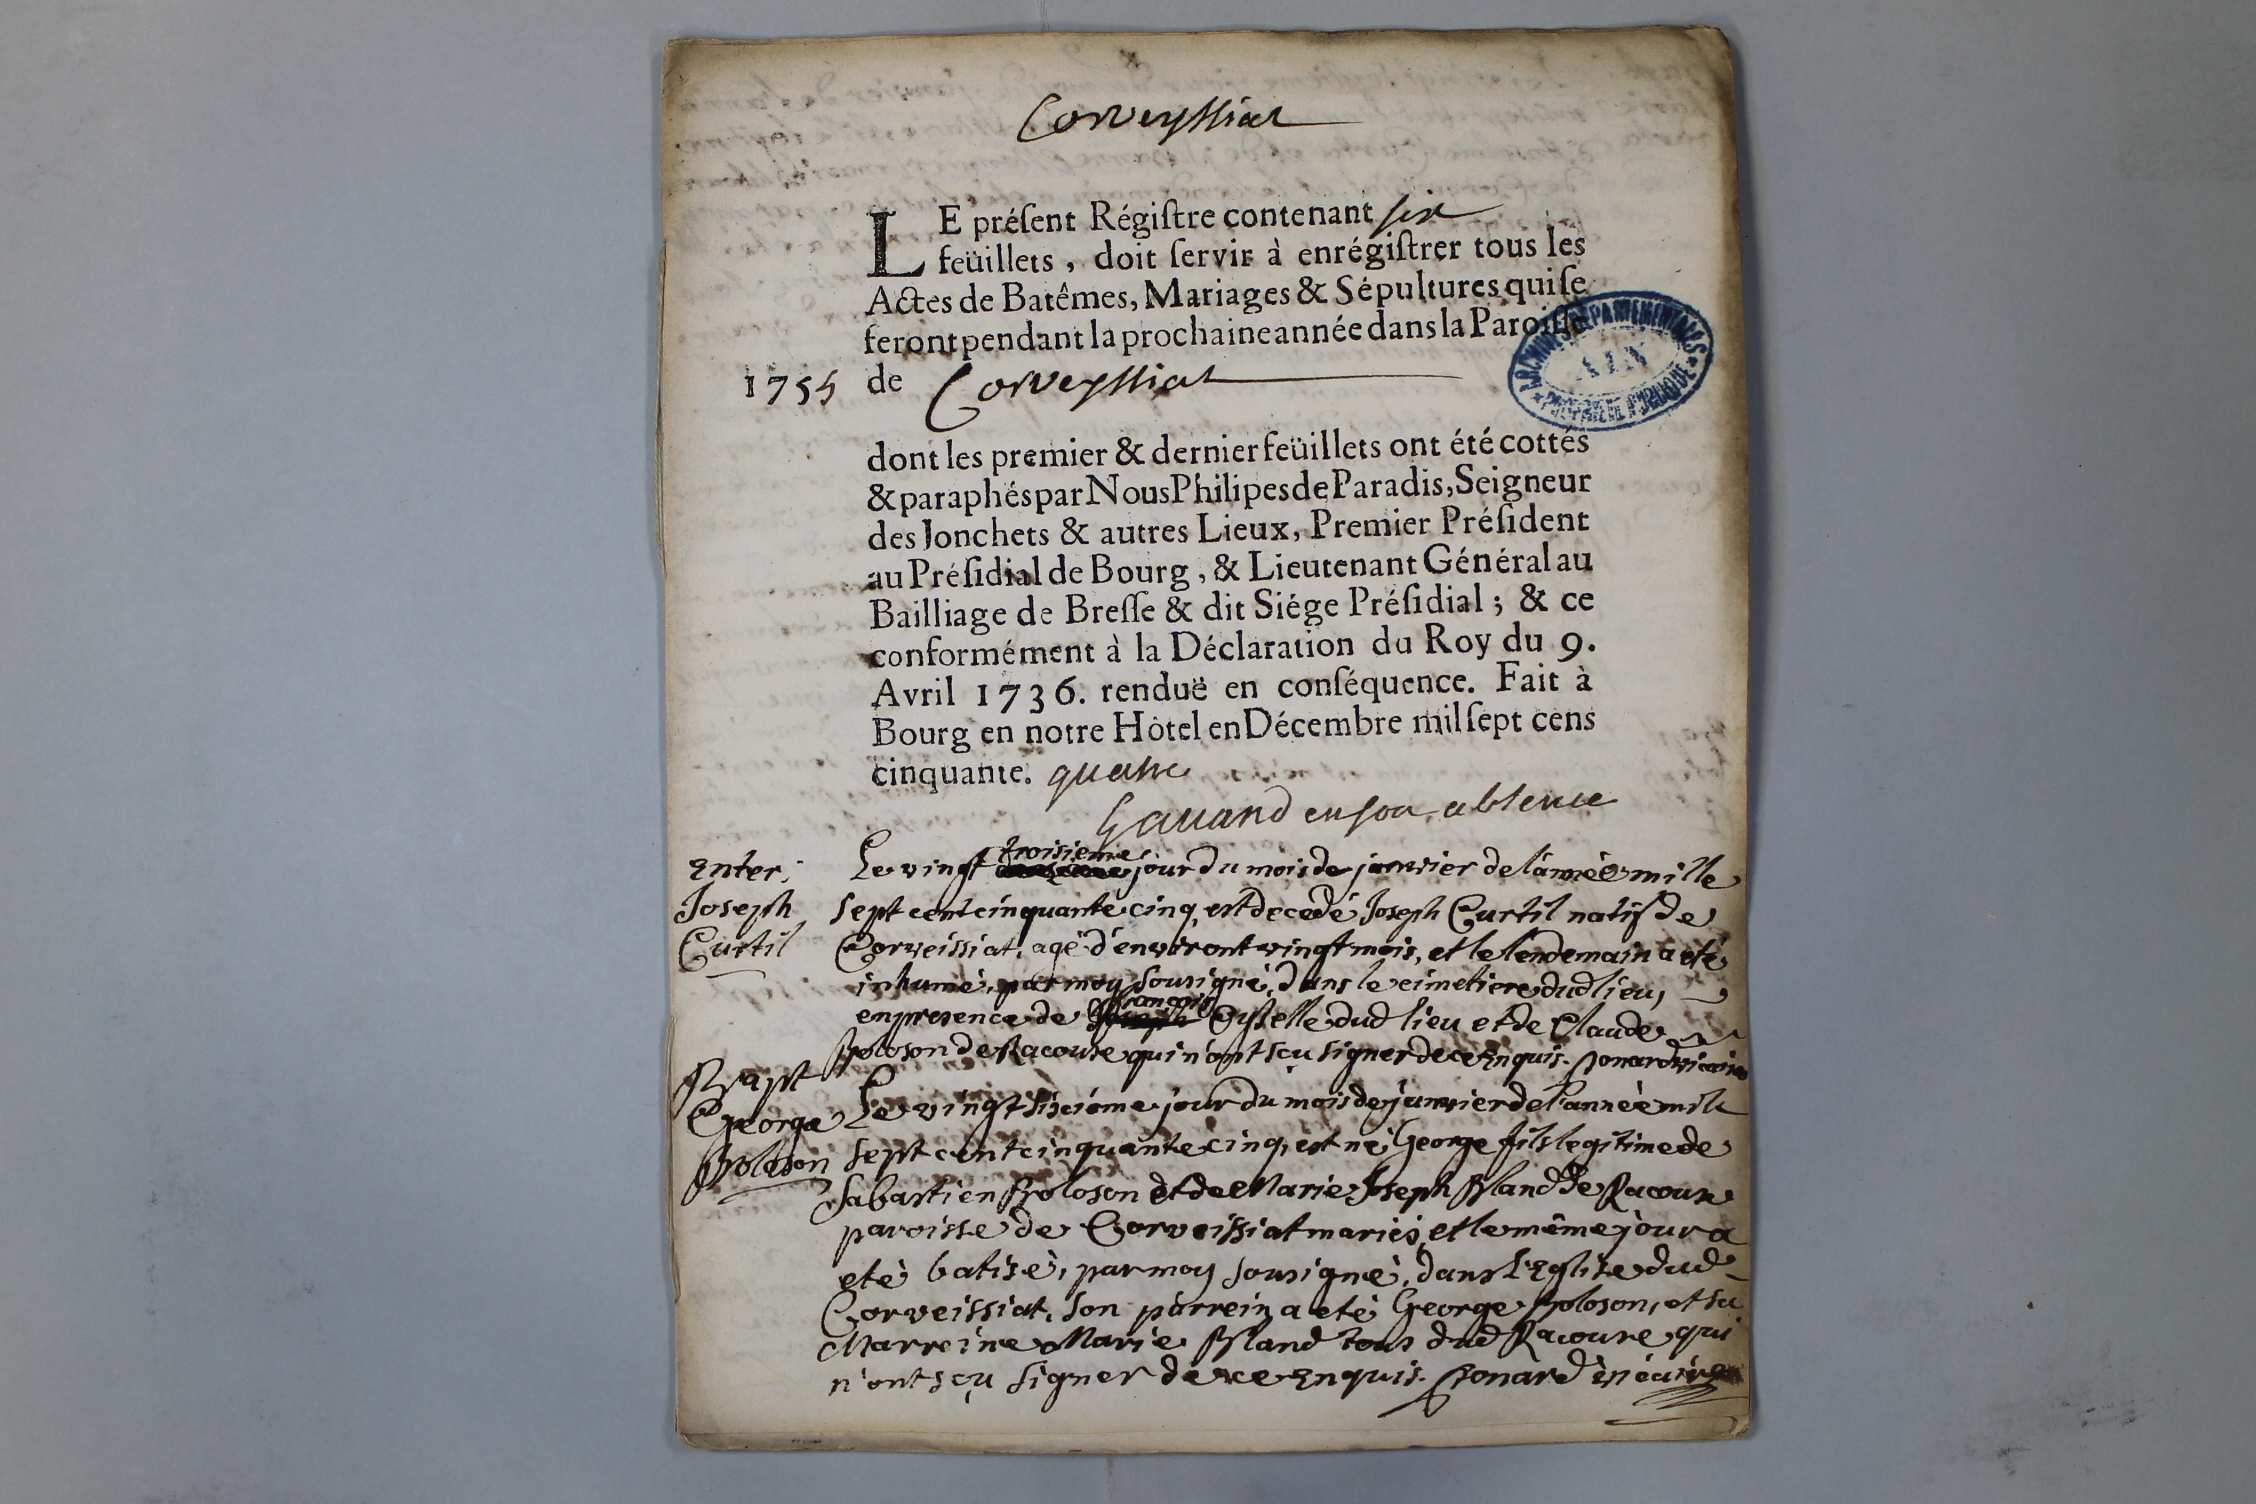 Corveyssiat
LE préſent Régiſtre contenant six
feüillets, doit ſervir à enrégiſtrer tous les
Actes de Batêmes, Mariages & Sépultures qui ſe
feront pendant la prochaine année dans la Paroiſſe
1755 de Corveyssiat
ARCHIVES DÉPARTEMENTALES
AIN
PROPRIÉTÉ PUBLIQUE
dont les premier & dernier feüillets ont été cottés
& paraphés par Nous Philipes de Paradis, Seigneur
des Jonchets & autres Lieux, Premier Préſident
au Préſidial de Bourg, & Lieutenant Général au
Bailliage de Breſſe & dit Siége Préſidial ; & ce
conformément à la Déclaration du Roy du 9.
Avril 1736. renduë en conſéquence. Fait à
Bourg en notre Hôtel en Décembre mil ſept cens
cinquante. quatre
Gauand en son absence
Enter.
Joseph
Curtil
Le vingt troisieme jour du mois de janvier de l'année mille
sept cent cinquante cinq est decedé Joseph Curtil natif de
Corveissiat, agé d'environt vingt mois, et le lendemain a eté
inhumé, par moy sousigné, dans le cimetiere dud lieu,
en presence de françois Oyselle dud lieu et de Claude
Boloson de Racouse qui n'ont sçu signer de ce Enquis. Bonard vicaire
Bapt
George
Boloson
Le vingt sixiéme jour du mois de janvier de l'anneé mile
sept cent cinquante cinq, est né George fils legitime de
Sabastien Boloson et de Marie Joseph Bland de Racouse
paroisse de Corveissiat mariés, et le même jour a
eté batisé, par moy sousigné, dans l'Eglise dud
Corveissiat, son parrein a eté George Boloson, et sa
Marreine Marie Bland tous dud Racouse qui
n'ont sçu signer de ce Enquis. Bonard vicaire